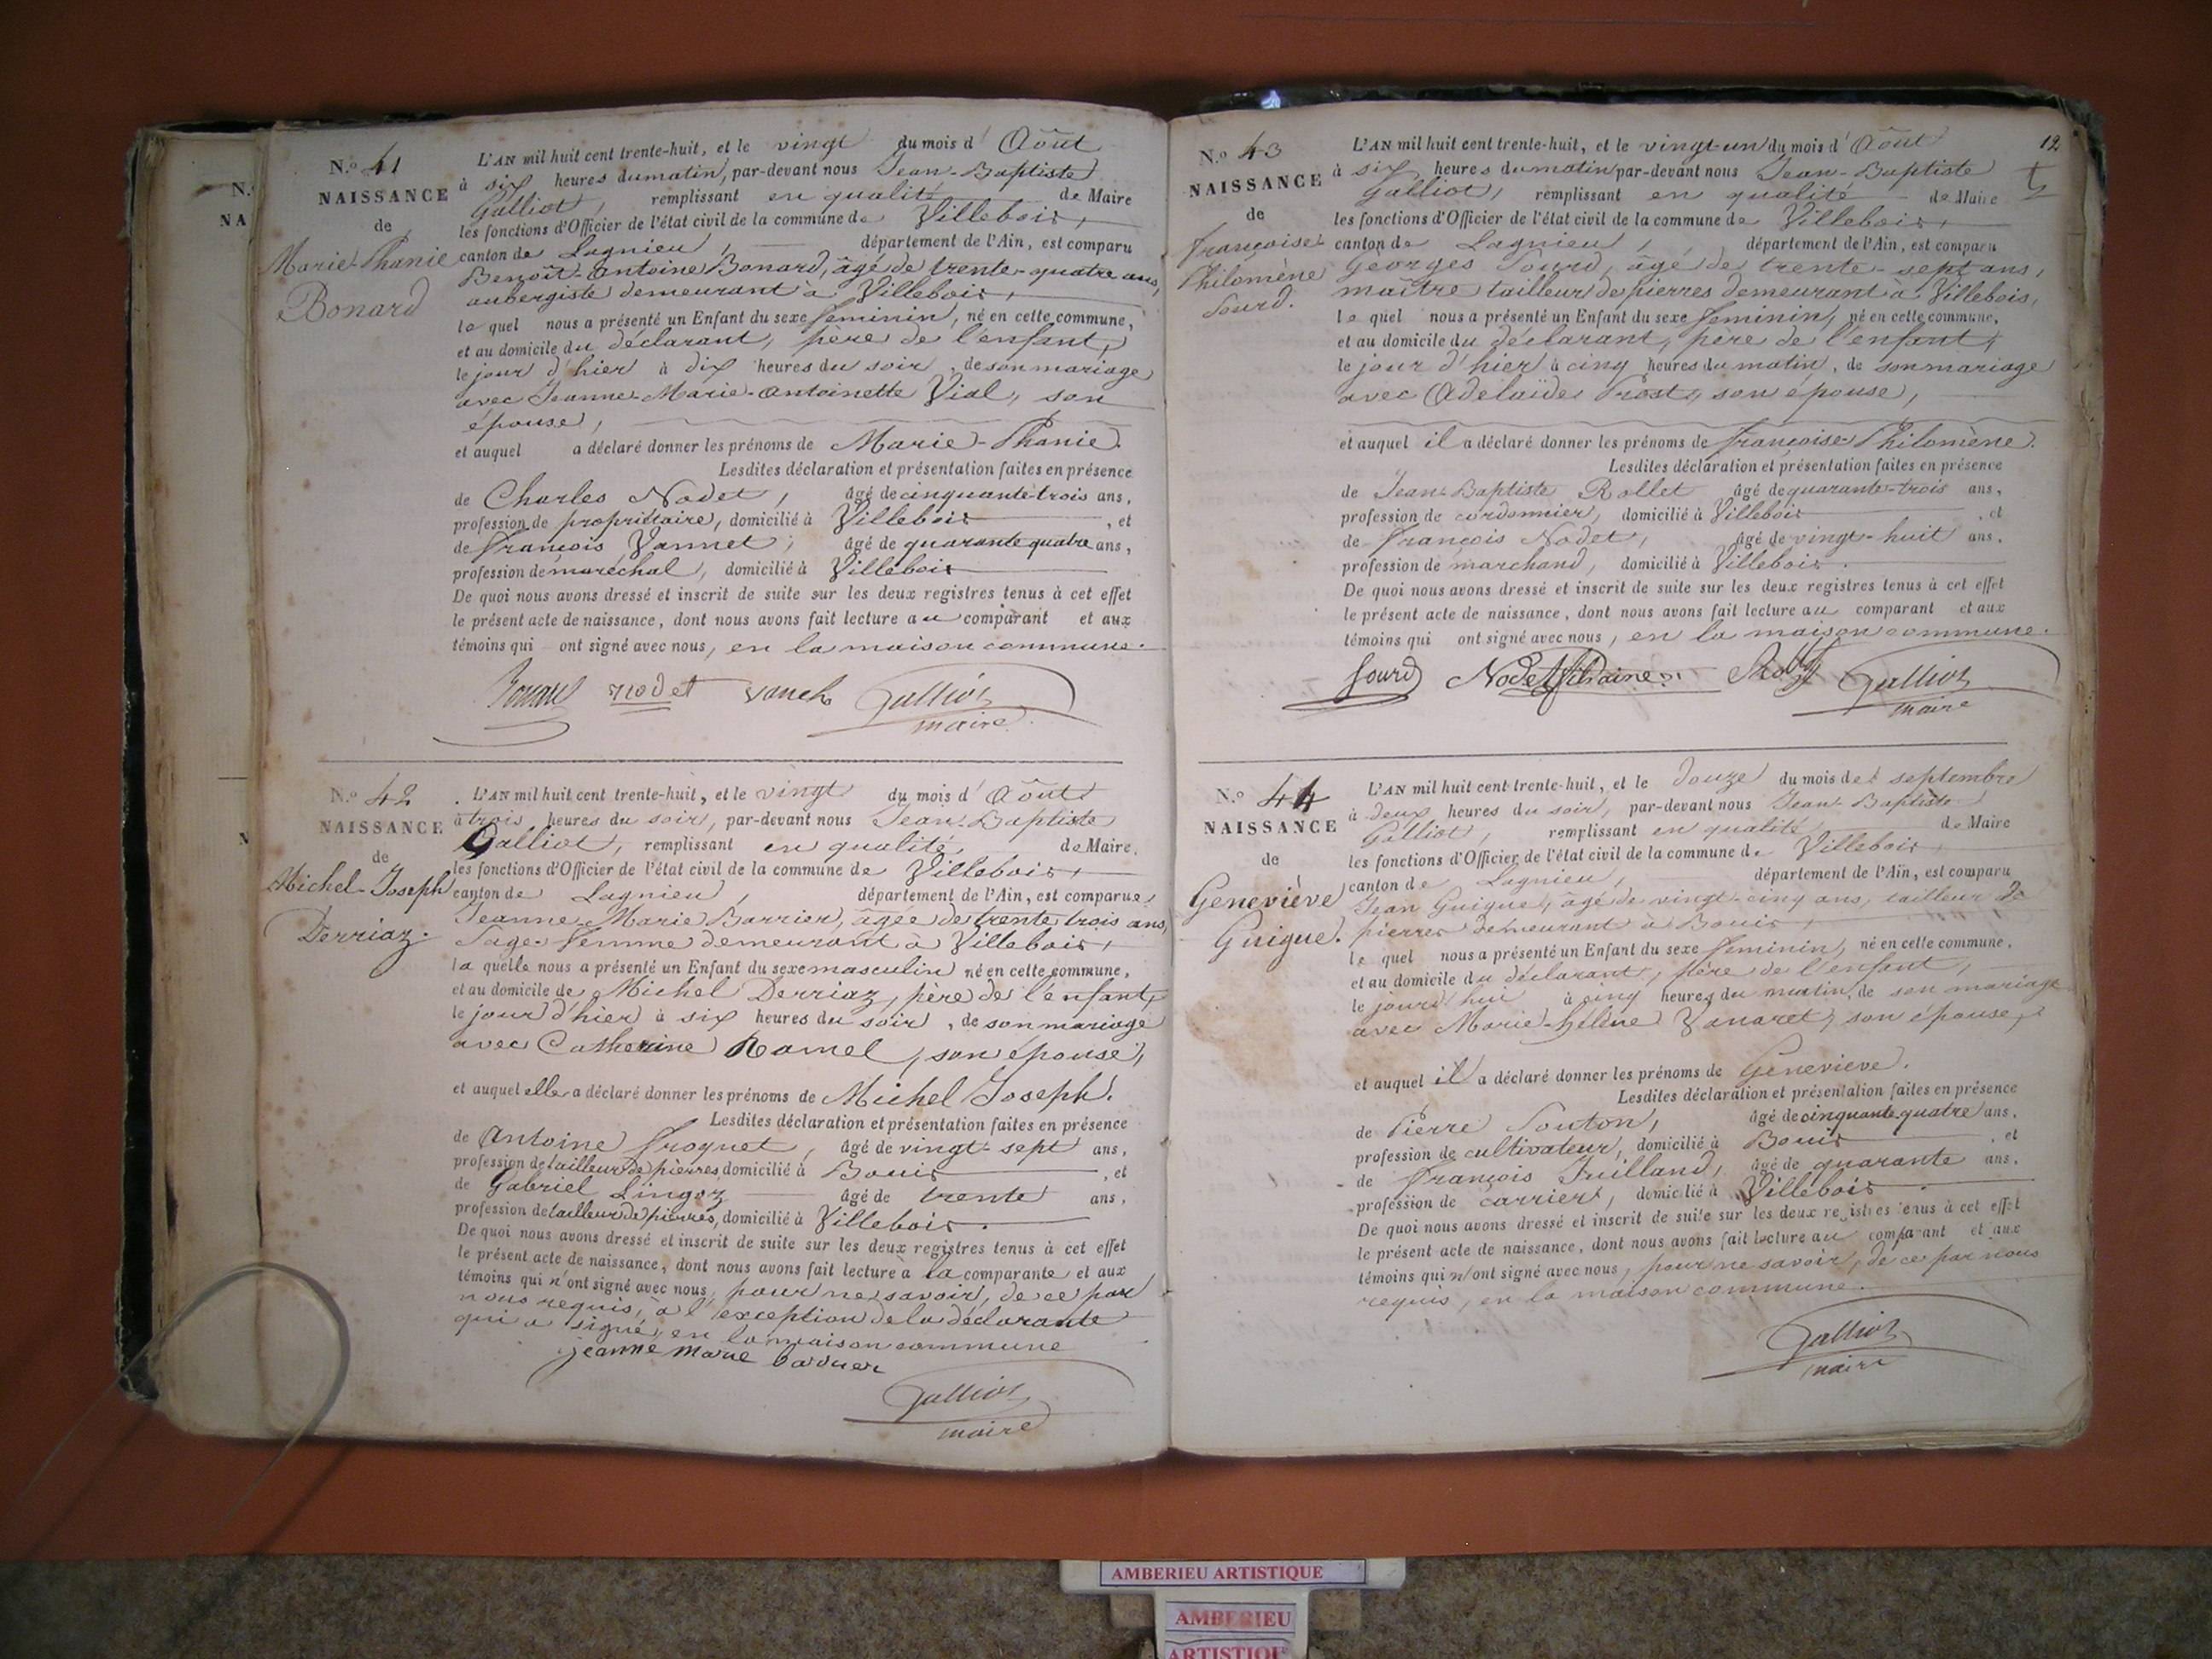 N.
NA
N
N.º 41
NAISSANCE
de
Marie-Phanie
Bonard
L'AN mil huit cent trente-huit, et le vingt du mois d'Août
à six heures du matin, par-devant nous Jean-Baptiste
Galliot, remplissant en qualité de Maire
les fonctions d'Officier de l'état civil de la commune de Villebois,
canton de Lagnieu, département de l'Ain, est comparu
Benoît-Antoine Bonard, âgé de trente-quatre ans,
aubergiste demeurant à Villebois,
le quel nous a présenté un Enfant du sexe feminin, né en cette commune,
et au domicile du déclarant, père de l'enfant,
le jour d'hier à dix heures du soir, de son mariage
avec Jeanne-Marie-Antoinette Vial, son
épouse,
et auquel a déclaré donner les prénoms de Marie-Phanie.
Lesdites déclaration et présentation faites en présence
de Charles Nodet, âgé de cinquante-trois ans,
profession de propriétaire, domicilié à Villebois, et
de François Vannet, âgé de quarante quatre ans,
profession de maréchal, domicilié à Villebois
De quoi nous avons dressé et inscrit de suite sur les deux registres tenus à cet effet
le présent acte de naissance, dont nous avons fait lecture au comparant et aux
témoins qui ont signé avec nous, en la maison commune.
Bonard nodet Galliot
maire
N.º 42
NAISSANCE
de
Michel-Joseph
Derriaz.
L'AN mil huit cent trente-huit, et le vingt du mois d'Août
à trois heures du soir, par-devant nous Jean-Baptiste
Galliot, remplissant en qualité de Maire
les fonctions d'Officier de l'état civil de la commune de Villebois,
canton de Lagnieu, département de l'Ain, est comparue
Jeanne-Marie Barrier, âgée de trente trois ans,
Sage-femme demeurant à Villebois,
la quelle nous a présenté un Enfant du sexe masculin né en cette commune,
et au domicile de Michel Derriaz, père de l'enfant,
le jour d'hier à six heures du soir, de son mariage
avec Catherine Ramel, son épouse,
et auquel elle a déclaré donner les prénoms de Michel Joseph.
Lesdites déclaration et présentation faites en présence
de Antoine Froquet, âgé de vingt-sept ans,
profession de tailleur de pierres, domicilié à Bouis, et
de Gabriel Lingoz âgé de trente ans,
profession de tailleur de pierres, domicilié à Villebois.
De quoi nous avons dressé et inscrit de suite sur les deux registres tenus à cet effet
le présent acte de naissance, dont nous avons fait lecture à la comparante et aux
témoins qui n'ont signé avec nous, pour ne savoir, de ce par
nous requis, à l'exception de la déclarante
qui a signé, en la maison commune
jeanne marie barrier
Galliot
maire
12
N.º 43
NAISSANCE
de
Françoise-
Philomène
Sourd.
L'AN mil huit cent trente-huit, et le vingt-un du mois d'Août
à six heures du matin par-devant nous Jean-Baptiste
Galliot, remplissant en qualité de Maire
les fonctions d'Officier de l'état civil de la commune de Villebois,
canton de Lagnieu, département de l'Ain, est comparu
Georges Sourd, âgé de trente-sept ans,
maître tailleur de pierres demeurant à Villebois,
le quel nous a présenté un Enfant du sexe feminin, né en cette commune,
et au domicile du déclarant, père de l'enfant,
le jour d'hier à cinq heures du matin, de son mariage
avec Adelaïde Prost, son épouse,
et auquel il a déclaré donner les prénoms de Françoise-Philomène.
Lesdites déclaration et présentation faites en présence
de Jean-Baptiste Rollet âgé de quarante-trois ans,
profession de cordonnier, domicilié à Villebois, et
de François Nodet, âgé de vingt-huit ans,
profession de marchand, domicilié à Villebois.
De quoi nous avons dressé et inscrit de suite sur les deux registres tenus à cet effet
le présent acte de naissance, dont nous avons fait lecture au comparant et aux
témoins qui ont signé avec nous, en la maison commune.
Sourd Nodet Galliot
maire
N.º 44
NAISSANCE
de
Geneviève
Guigue.
L'AN mil huit cent trente-huit, et le douze du mois de septembre
à deux heures du soir, par-devant nous Jean-Baptiste
Galliot, remplissant en qualité de Maire
les fonctions d'Officier de l'état civil de la commune de Villebois,
canton de Lagnieu, département de l'Ain, est comparu
Jean Guigue, âgé de vingt-cinq ans, tailleur de
pierres demeurant à Bouis,
le quel nous a présenté un Enfant du sexe feminin, né en cette commune,
et au domicile du déclarant, père de l'enfant,
le jourd'hui à cinq heures du matin, de son mariage
avec Marie-Hélène Vanaret, son épouse,
et auquel il a déclaré donner les prénoms de Geneviève.
Lesdites déclaration et présentation faites en présence
de Pierre Souton, âgé de cinquante quatre ans,
profession de cultivateur, domicilié à Bouis, et
de François Juilland, âgé de quarante ans,
profession de carrier, domicilié à Villebois.
De quoi nous avons dressé et inscrit de suite sur les deux registres tenus à cet effet
le présent acte de naissance, dont nous avons fait lecture au comparant et aux
témoins qui n'ont signé avec nous, pour ne savoir, de ce par nous
requis, en la maison commune.
Galliot
maire
AMBERIEU ARTISTIQUE
AMBERIEU
ARTISTIQU